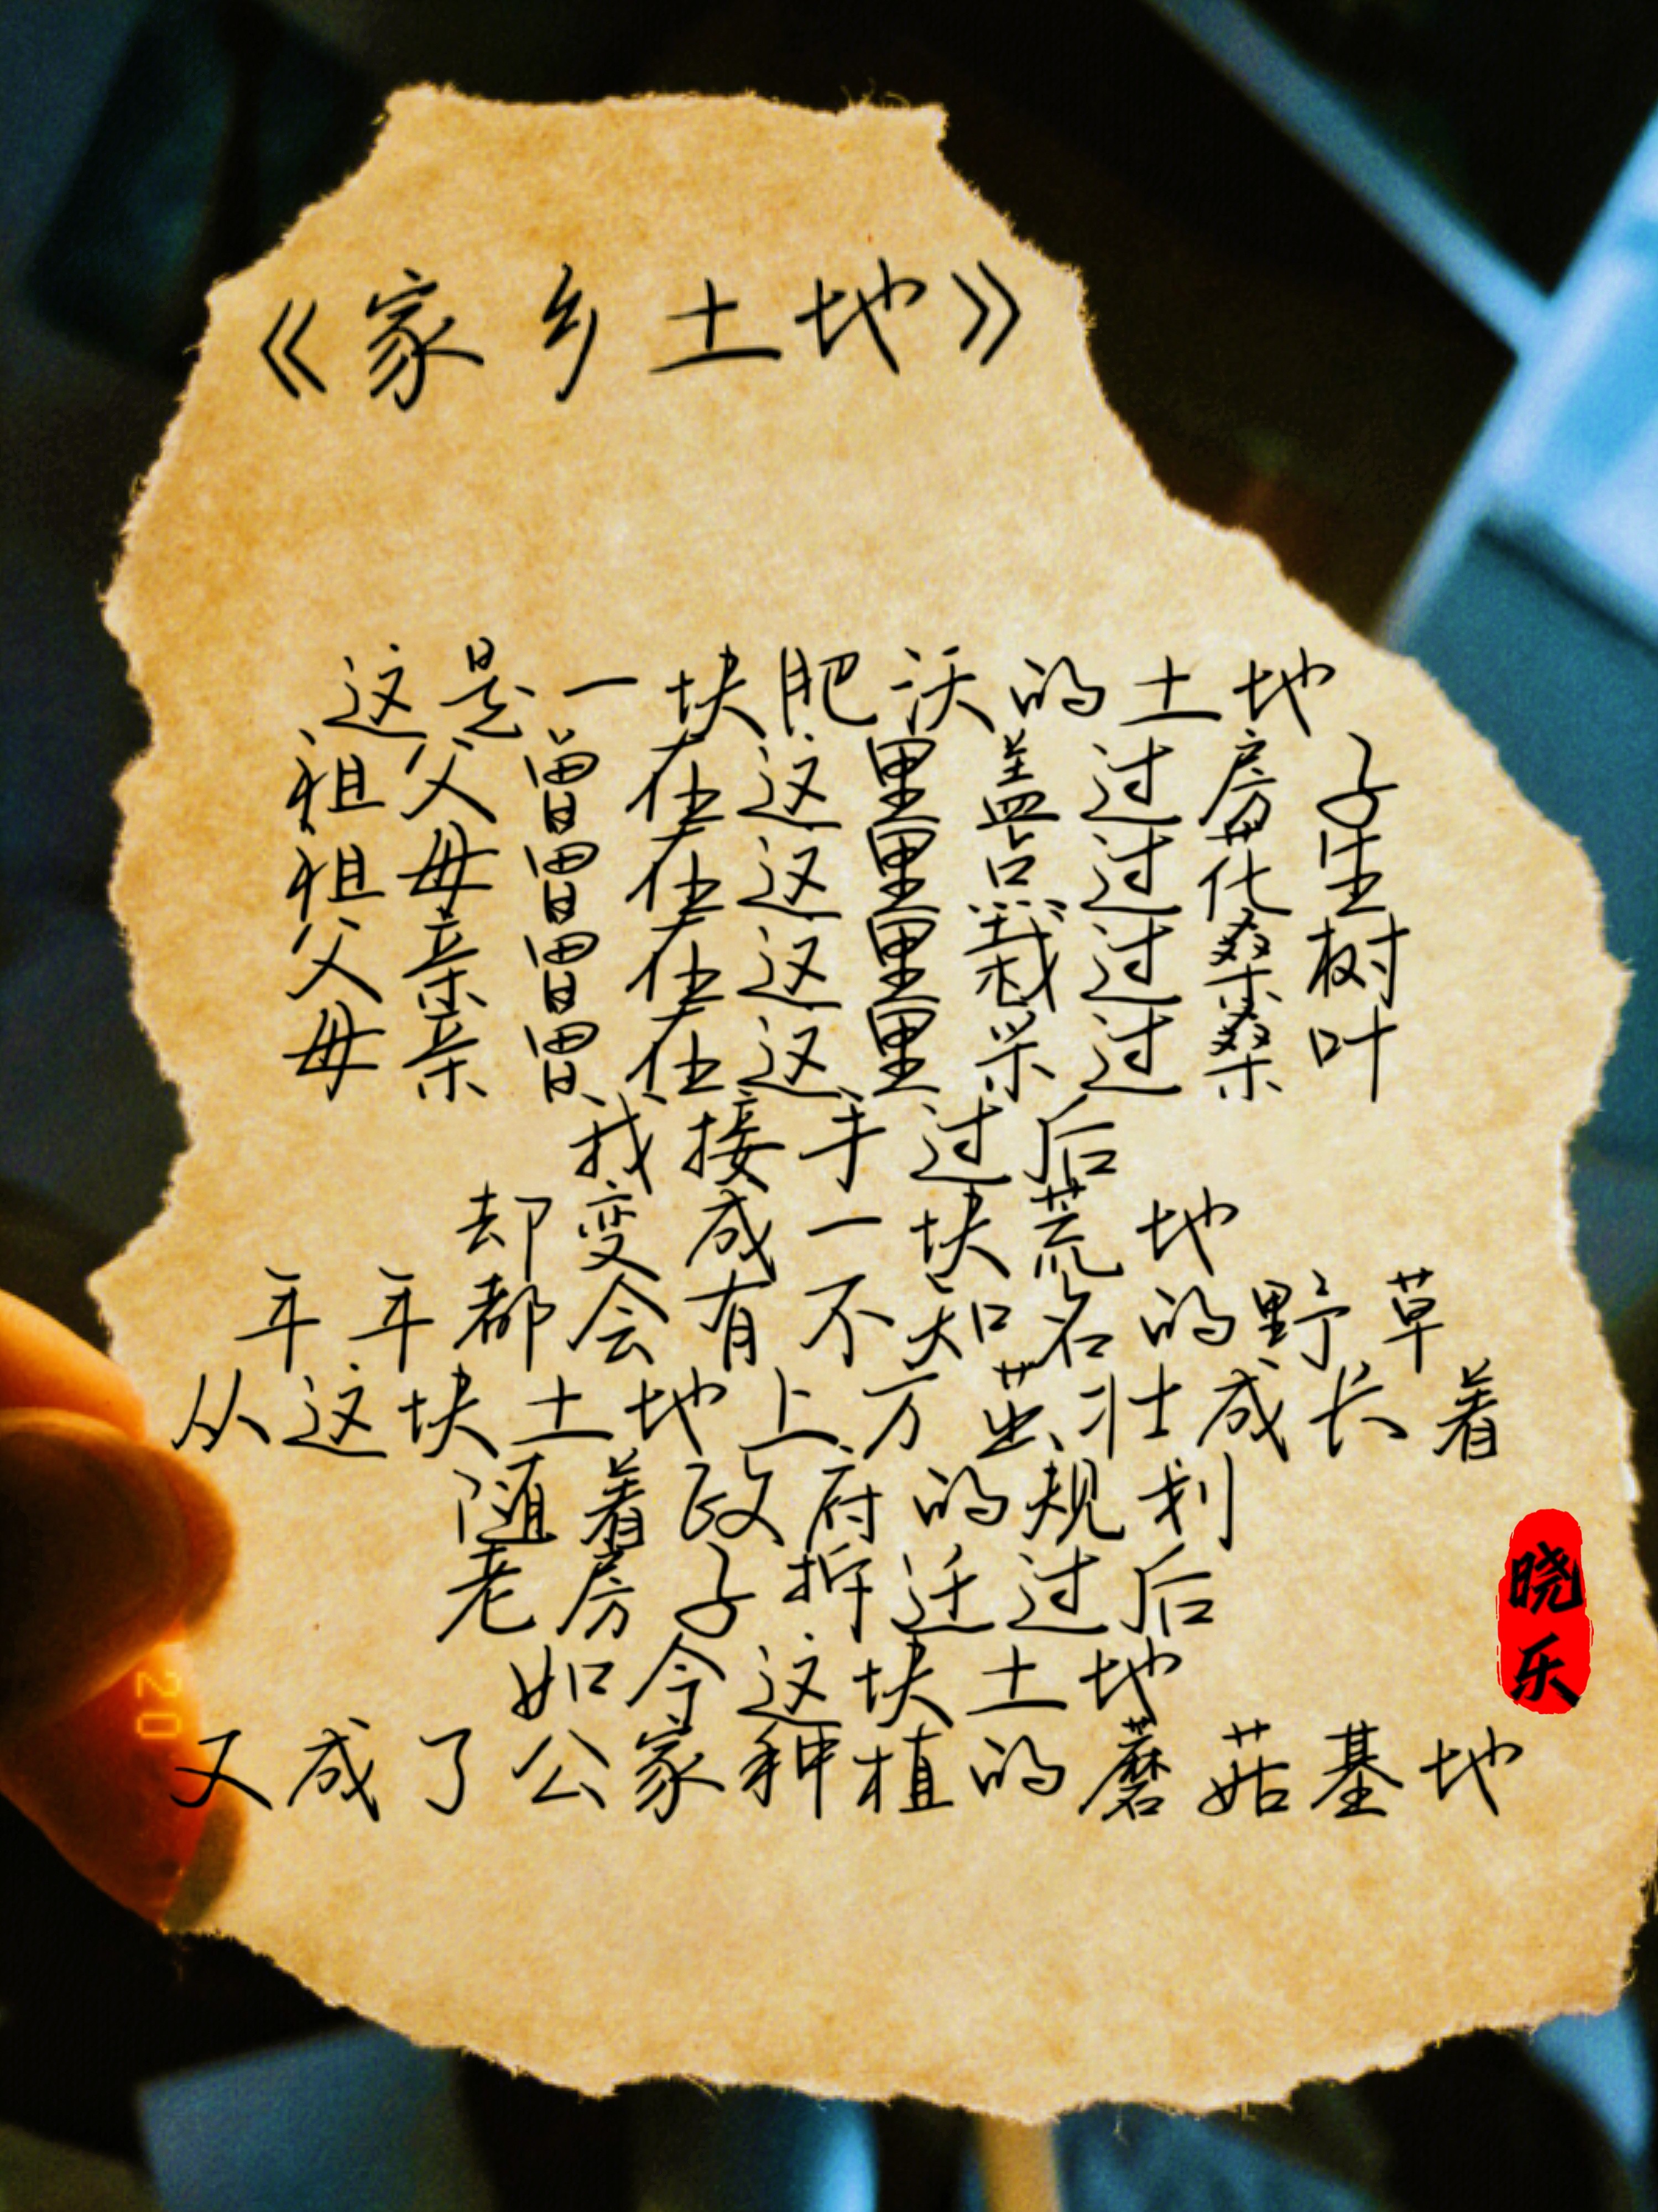 《家乡土地》
这是一块肥沃的土地
祖父曾在这里盖过房子
祖母曾在这里点过花生
父亲曾在这里栽过桑树
母亲曾在这里采过桑叶
我接手过后
却变成一块荒地
年年都会有不知名的野草
从这块土地上方茁壮成长着
随着政府的规划
老房子拆迁过后
如今这块土地
又成了公家种植的蘑菇基地
晓乐
20